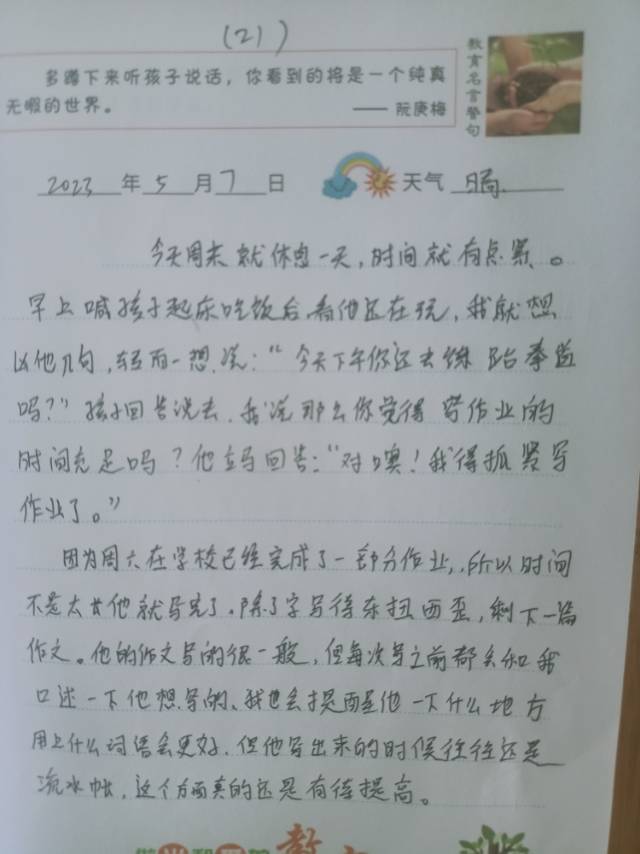 (21)
多蹲下来听孩子说话，你看到的将是一个纯真
无暇的世界。 —— 阮庚梅
教育名言警句
2023 年 5 月 7 日 天气 晴
今天周末就休息一天，时间就有点紧。
早上喊孩子起床吃饭后，看他还在玩，我就想
凶他几句，转而一想，说：“今天下午你还去练跆拳道
吗？”孩子回答说去，我说那么你觉得写作业的
时间充足吗？他立马回答：“对噢！我得抓紧写
作业了。”
因为周六在学校已经完成了一部分作业，所以时间
不是太长他就写完了。除了字写得东扭西歪，剩下一篇
作文。他的作文写的很一般，但每次写之前都会和我
口述一下他想写的、我也会提醒他一下什么地方
用上什么词语会更好，但他写出来的时候往往还是
流水帐，这个方面真的还是有待提高。
教